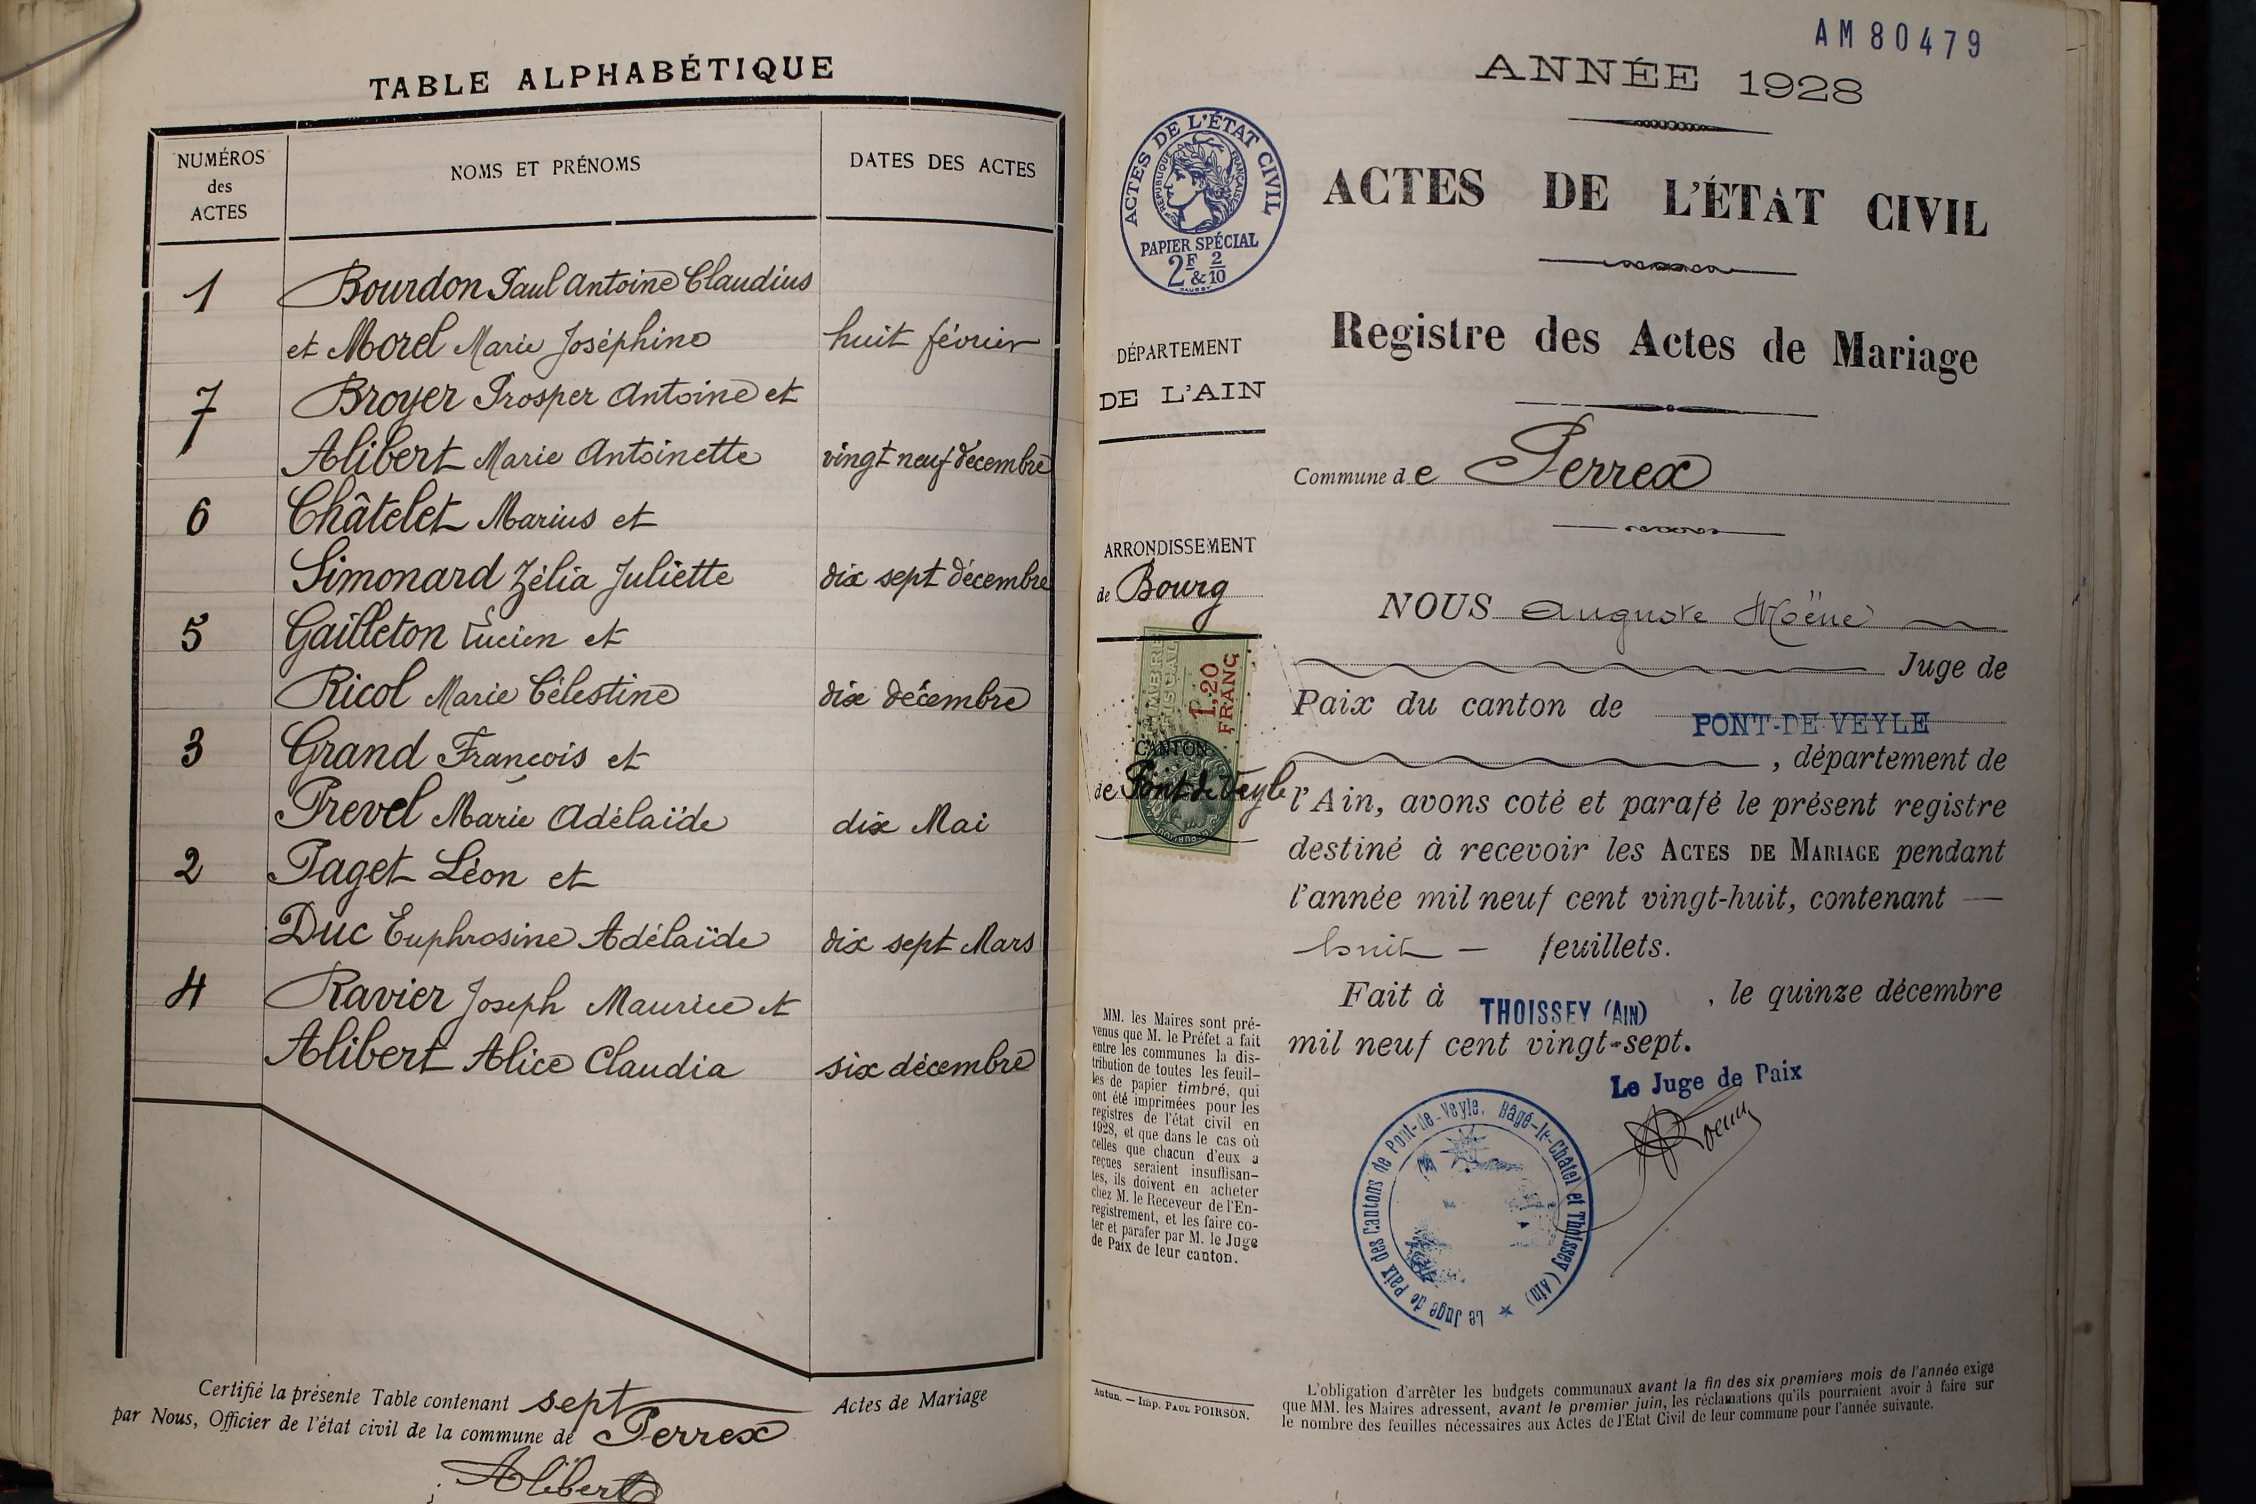 TABLE ALPHABÉTIQUE
NUMÉROS
des
ACTES
NOMS ET PRÉNOMS
DATES DES ACTES
1 Bourdon Paul Antoine Claudius
et Morel Marie Joséphine huit février
7 Broyer Prosper Antoine et
Alibert Marie Antoinette vingt neuf décembre
6 Châtelet Marius et
Simonard Zélia Juliette dix sept décembre
5 Gailleton Lucien et
Ricol Marie Célestine dix décembre
3 Grand François et
Prevel Marie Adélaïde dix Mai
2 Paget Léon et
Duc Euphrosine Adélaïde dix sept Mars
4 Ravier Joseph Maurice et
Alibert Alice Claudia six décembre
Certifié la présente Table contenant sept Actes de Mariage
par Nous, Officier de l'état civil de la commune de Perrex
Alibert
AM80479
ANNÉE 1928
ACTES DE L'ÉTAT CIVIL
RÉPUBLIQUE FRANÇAISE
PAPIER SPÉCIAL
2F & 2/10
ACTES DE L'ÉTAT CIVIL
Registre des Actes de Mariage
DÉPARTEMENT
DE L'AIN
Commune de Perrex
ARRONDISSEMENT
de Bourg
TIMBRE
FISCAL
1,20
FRANC
CANTON
de Pont de Veyle
NOUS Auguste Moëne
Juge de
Paix du canton de PONT-DE-VEYLE
, département de
l'Ain, avons coté et parafé le présent registre
destiné à recevoir les ACTES DE MARIAGE pendant
l'année mil neuf cent vingt-huit, contenant —
huit — feuillets.
Fait à THOISSEY (AIN) , le quinze décembre
mil neuf cent vingt-sept.
Le Juge de Paix
Le Juge de Paix des Cantons de Pont-de-Veyle, Bâgé-le-Châtel et Thoissey (Ain)
MM. les Maires sont pré-
venus que M. le Préfet a fait
entre les communes la dis-
tribution de toutes les feuil-
les de papier timbré, qui
ont été imprimées pour les
registres de l'état civil en
1928, et que dans le cas où
celles que chacun d'eux a
reçues seraient insuffisan-
tes, ils doivent en acheter
chez M. le Receveur de l'En-
registrement, et les faire co-
ter et parafer par M. le Juge
de Paix de leur canton.
Autun. — Imp. PAUL POIRSON.
L'obligation d'arrêter les budgets communaux avant la fin des six premiers mois de l'année exige
que MM. les Maires adressent, avant le premier juin, les réclamations qu'ils pourraient avoir à faire sur
le nombre des feuilles nécessaires aux Actes de l'Etat Civil de leur commune pour l'année suivante.